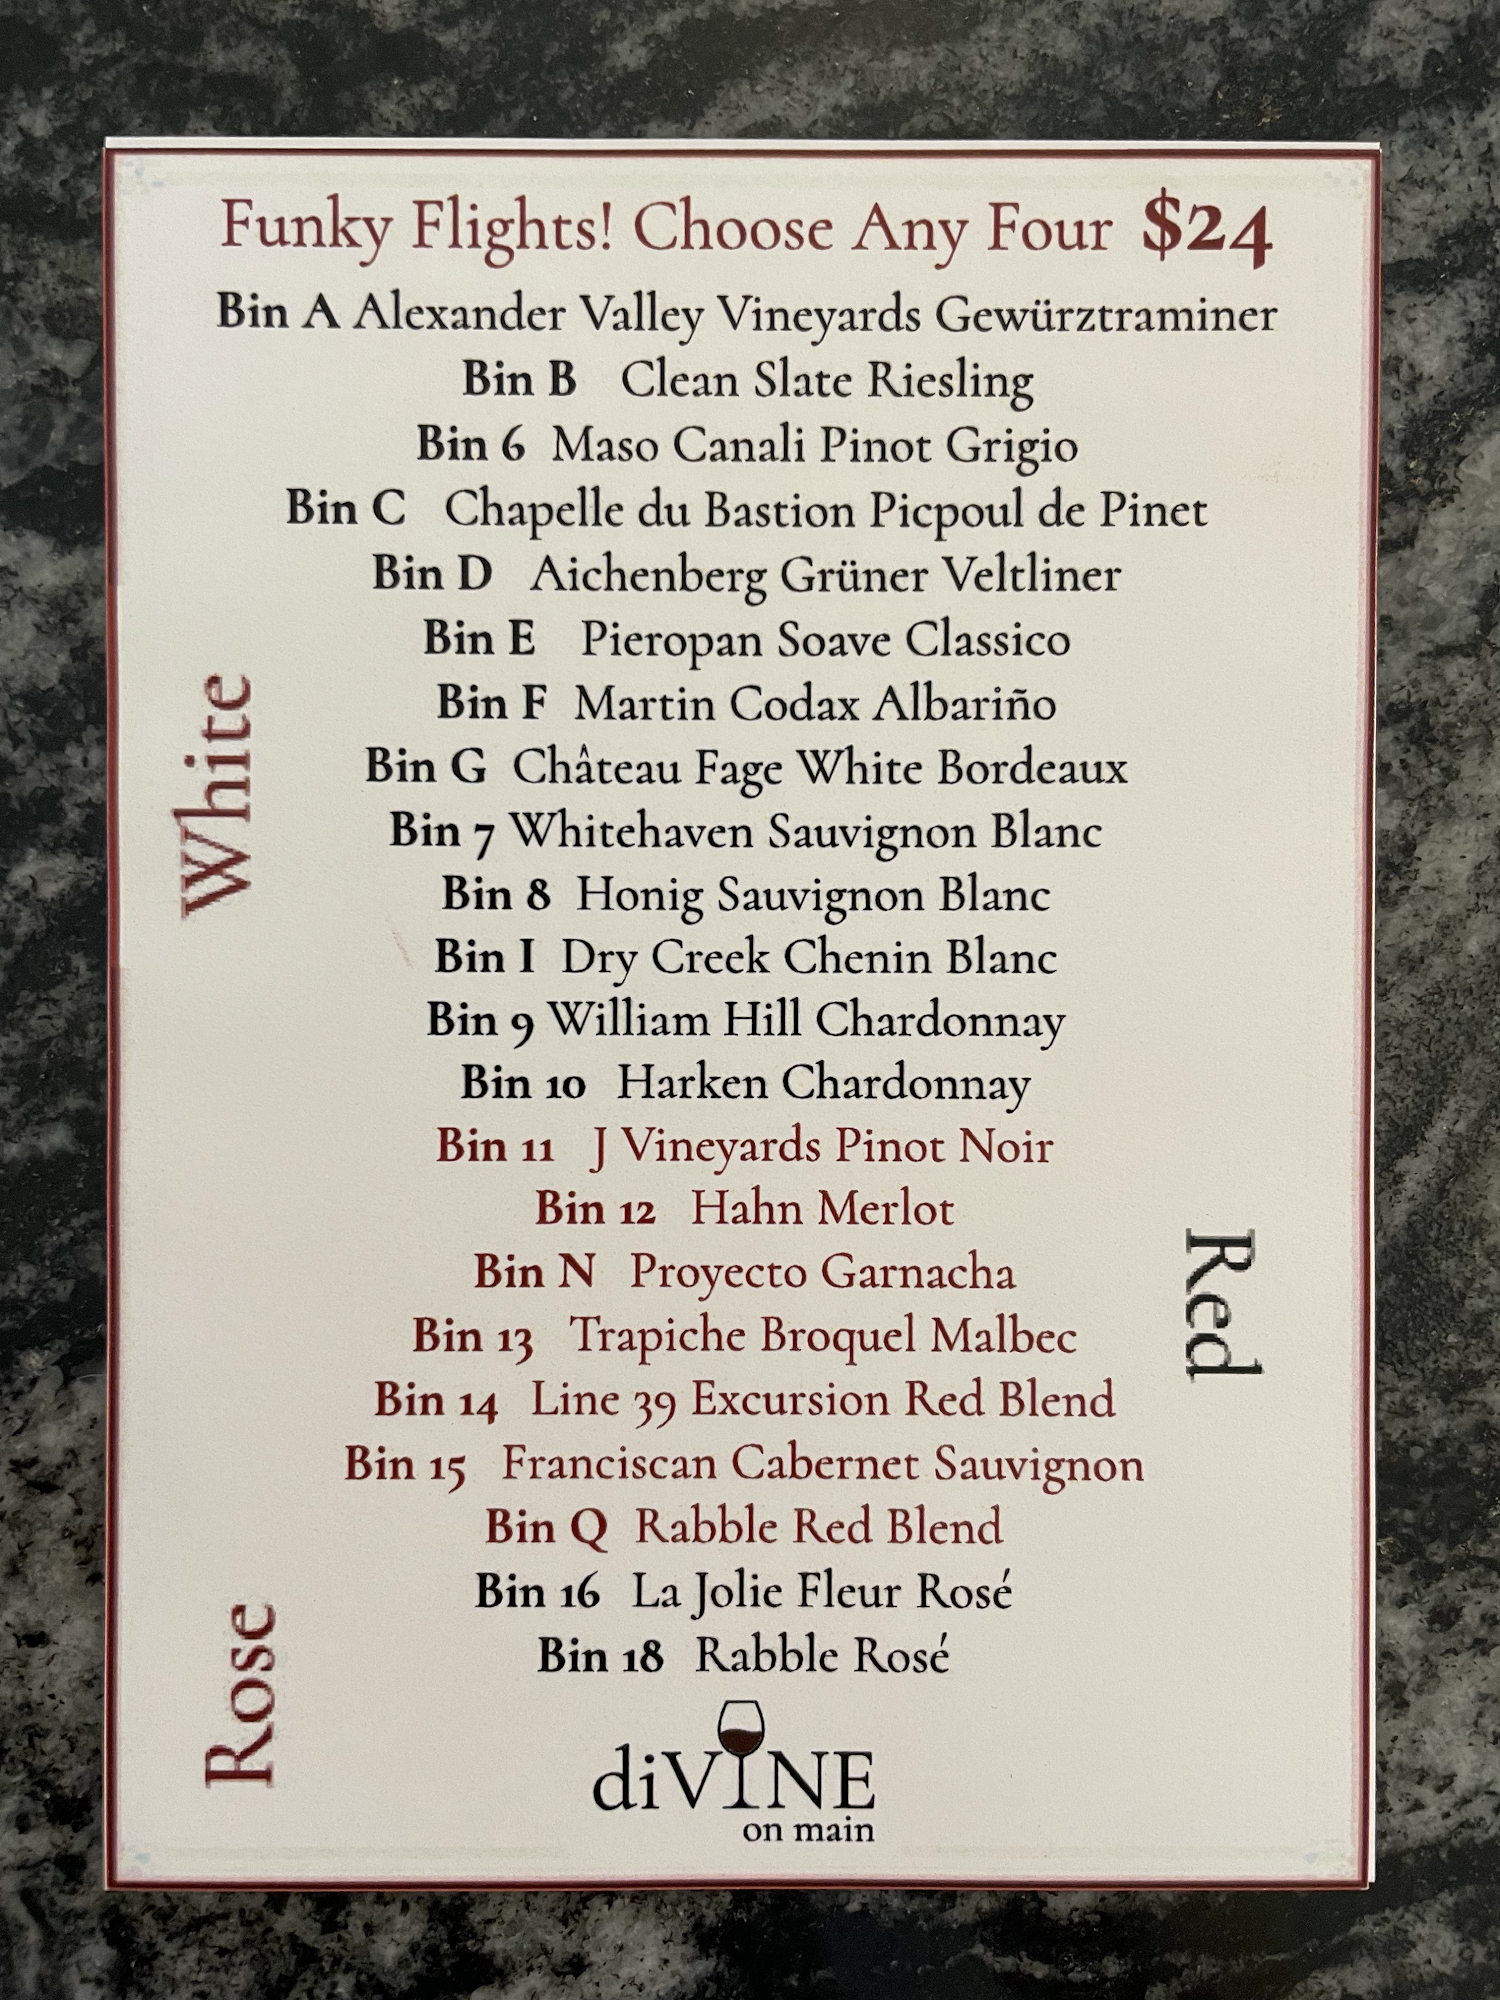 Funky Flights! Choose Any Four $24
Bin A Alexander Valley Vineyards Gewürztraminer
Bin B Clean Slate Riesling
Bin 6 Maso Canali Pinot Grigio
Bin C Chapelle du Bastion Picpoul de Pinet
Bin D Aichenberg Grüner Veltliner
Bin E Pieropan Soave Classico
Bin F Martin Codax Albariño
Bin G Château Fage White Bordeaux
Bin 7 Whitehaven Sauvignon Blanc
Bin 8 Honig Sauvignon Blanc
Bin I Dry Creek Chenin Blanc
Bin 9 William Hill Chardonnay
Bin 10 Harken Chardonnay
White
Bin 11 J Vineyards Pinot Noir
Bin 12 Hahn Merlot
Bin N Proyecto Garnacha
Bin 13 Trapiche Broquel Malbec
Bin 14 Line 39 Excursion Red Blend
Bin 15 Franciscan Cabernet Sauvignon
Bin Q Rabble Red Blend
Red
Bin 16 La Jolie Fleur Rosé
Bin 18 Rabble Rosé
Rose
diVINE
on main